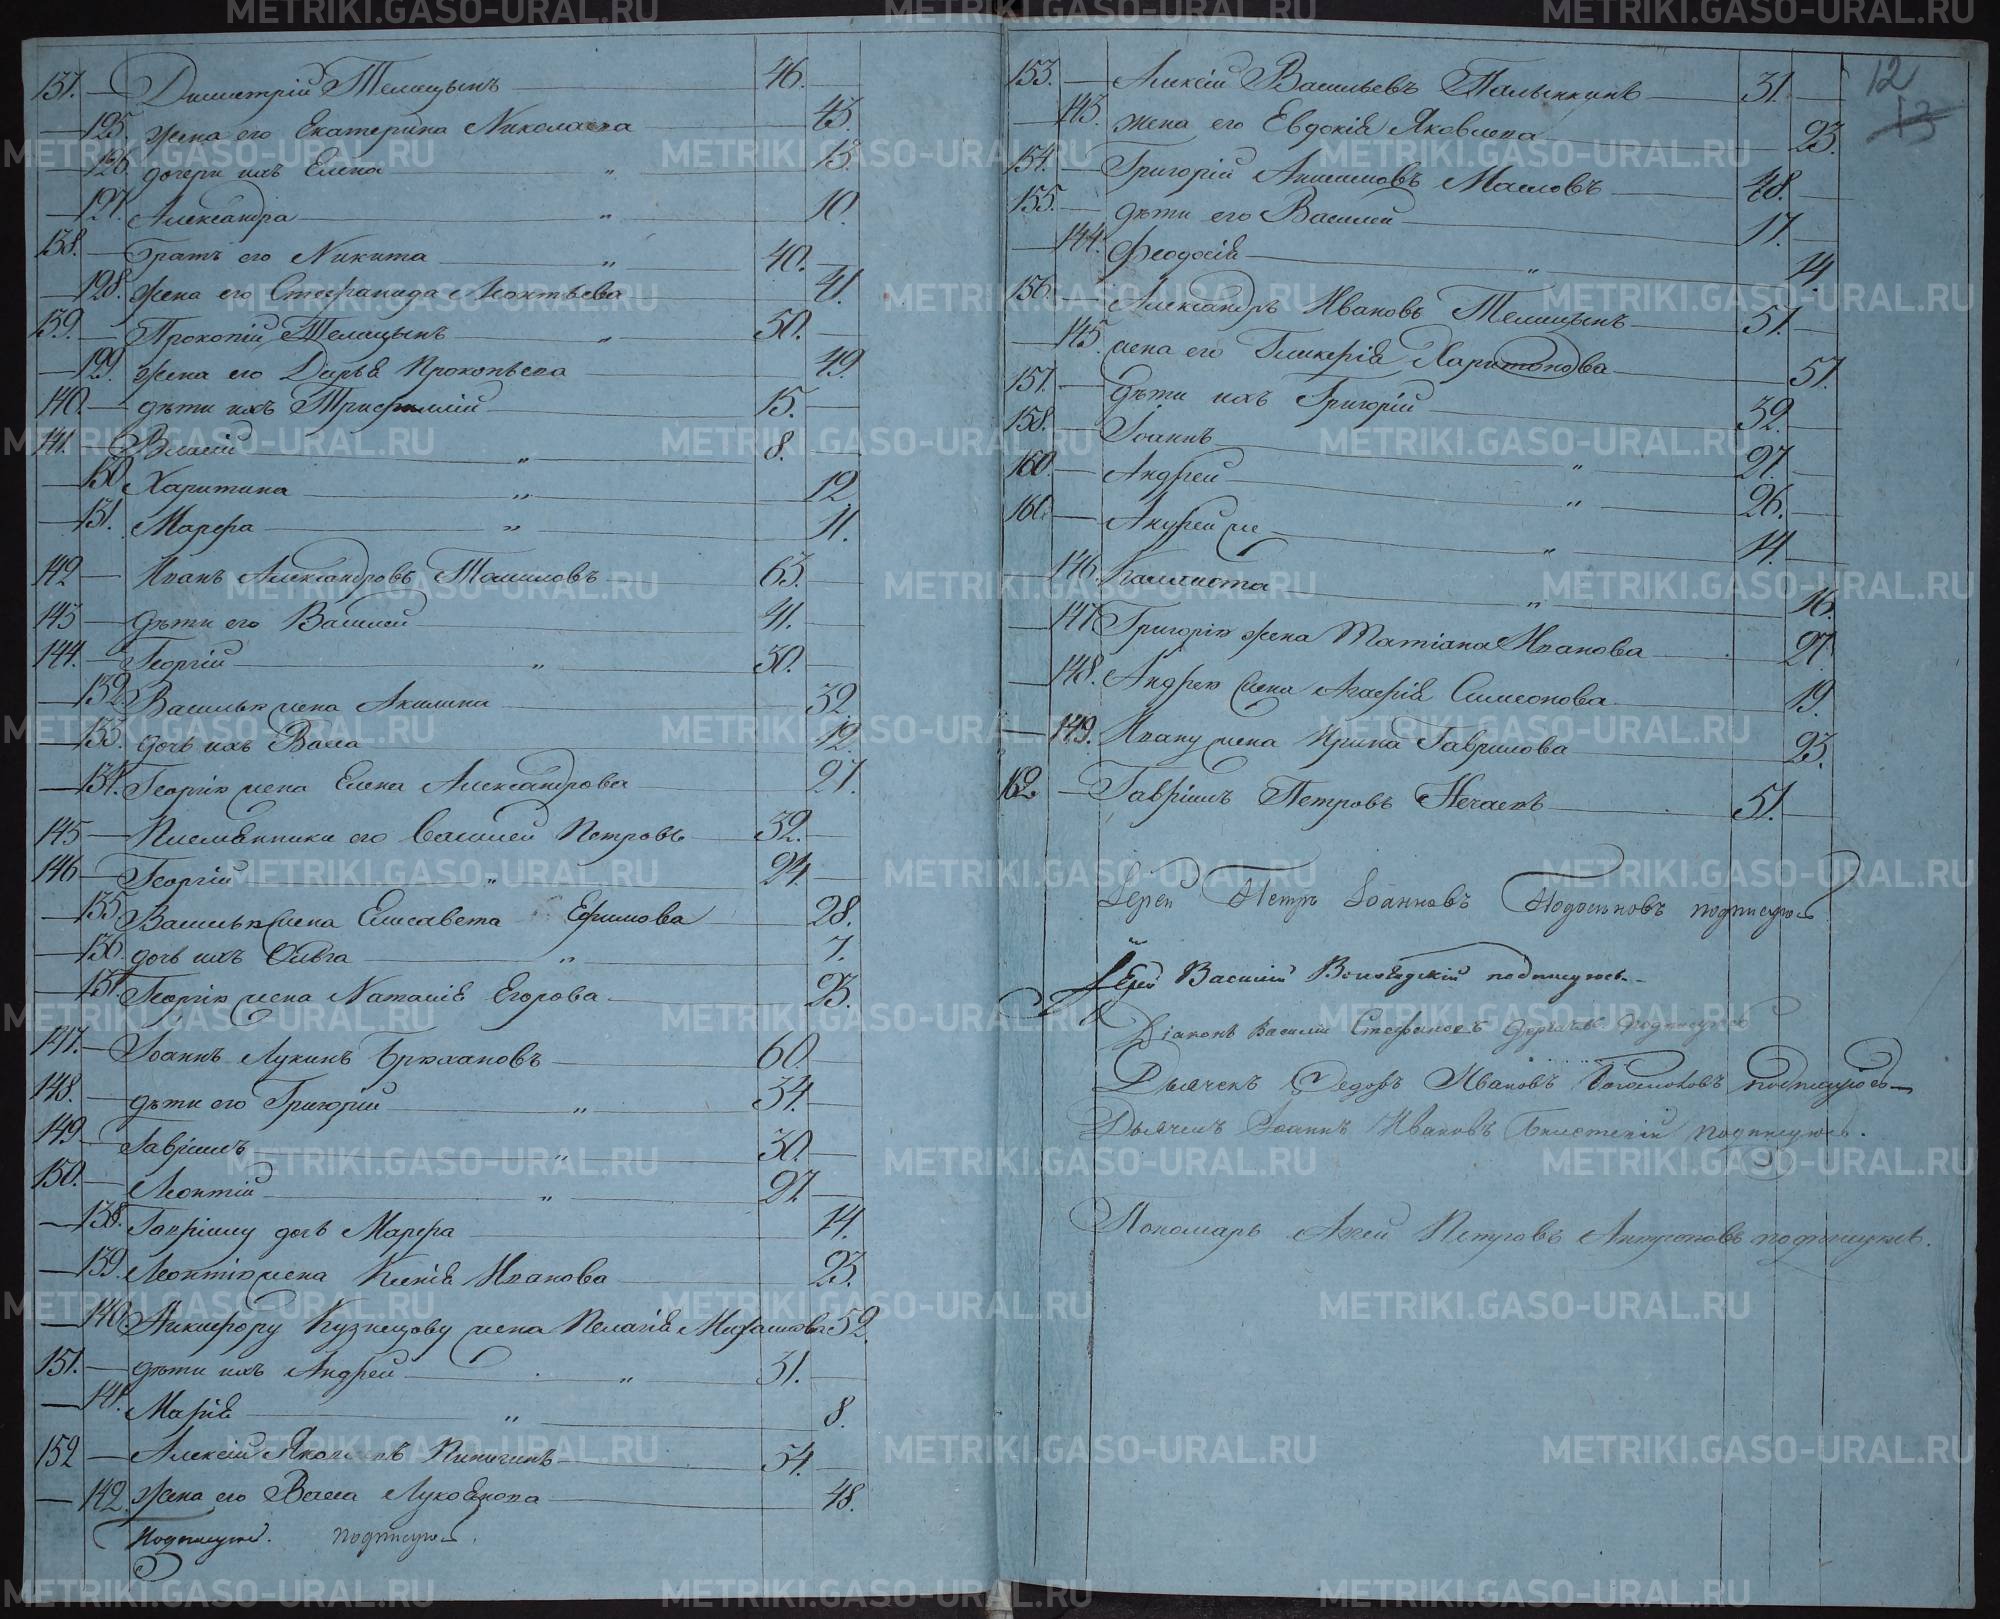 137. — Димитрій Телицынъ — 46. —
— 125. жена его Екатерина Николаева — 43.
— 126. дочери ихъ Елена „ — 13.
— 127. Александра „ — 10.
138. — Братъ его Никита „ — 40. —
— 128. жена его Стефанида Леонтьева — 41.
139. — Прокопій Телицынъ „ — 50. —
— 129. жена его Дарья Прокопьева — 49.
140. — дѣти ихъ Трифиллій — 15. —
141. — Власій „ — 8. —
— 130. Харитина „ — 12.
— 131. Марѳа „ — 11.
142 — Иванъ Александровъ Томиловъ — 63. —
143 — дѣти его Василій — 41. —
144. — Георгій „ — 30. —
— 132. Василья жена Акилина — 32
— 133. дочь ихъ Васса — 12.
— 134. Георгія жена Елена Александрова — 27.
145 — Племянники его Василій Петровъ — 32. —
146 — Георгій „ — 24. —
— 135 Василья жена Елисавета Ефимова — 28.
— 136. дочь ихъ Ольга „ — 7.
— 137. Георгія жена Наталія Егорова — 23.
147. — Іоаннъ Лукинъ Брюхановъ — 60. —
148. — дѣти его Григорій „ — 34. —
149 — Гавріилъ „ — 30. —
150. — Леонтій „ — 27. —
— 138. Гавріилу дочь Марѳа — 14.
— 139. Леонтія жена Ксенія Иванова — 23.
— 140. Никифору Кузнецову жена Пелагія 52.
151. — дѣти ихъ Андрей „ — 31. —
— 141. Марія „ — 8.
152 — Алексій Яковлевъ Пиничинъ — 54. —
— 142. жена его Васса — 48.
подписуюсь. подписуюсь.
12
13
153. — Алексій Васильевъ Палынкинъ — 31. —
— 143. жена его Евдокія Яковлева — 23.
154. — Григорій Анисимовъ Масловъ — 48. —
155. — дѣти его Василій — 17. —
— 144. Феодосія „ — 14.
156. — Александръ Ивановъ Телицынъ — 51. —
— 145. жена его Гликерія Харитонова — 51.
157. — дѣти ихъ Григорій — 32. —
158. — Іоаннъ „ — 27. —
160. — Андрей „ — 26. —
161. — Андрей же „ — 14. —
— 146. Каллиста „ — 16.
— 147 Григорія жена Татіана Иванова — 27.
— 148. Андрея жена Агафія Симеонова — 19.
— 149. Ивану жена Ирина Гаврилова — 23.
162. — Гавріилъ Петровъ Нечаевъ — 51. —
Іерей Петръ Іоанновъ подписуюсь
Іерей Василій подписуюсь. —
Діаконъ Василій Стефановъ подписуюсь
Дьячекъ Ѳедоръ Ивановъ Богомоловъ подписуюсь —
Дьячекъ Іоаннъ Ивановъ подписуюсь.
Пономарь Петровъ Антроповъ подписуюсь.
METRIKI.GASO-URAL.RU